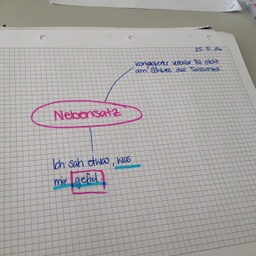 25.5.
konjugierter verbaler Teil steht
am Schluss des Teilsatzes.
Nebensatz
Ich sah etwas, was
mir gefiel.